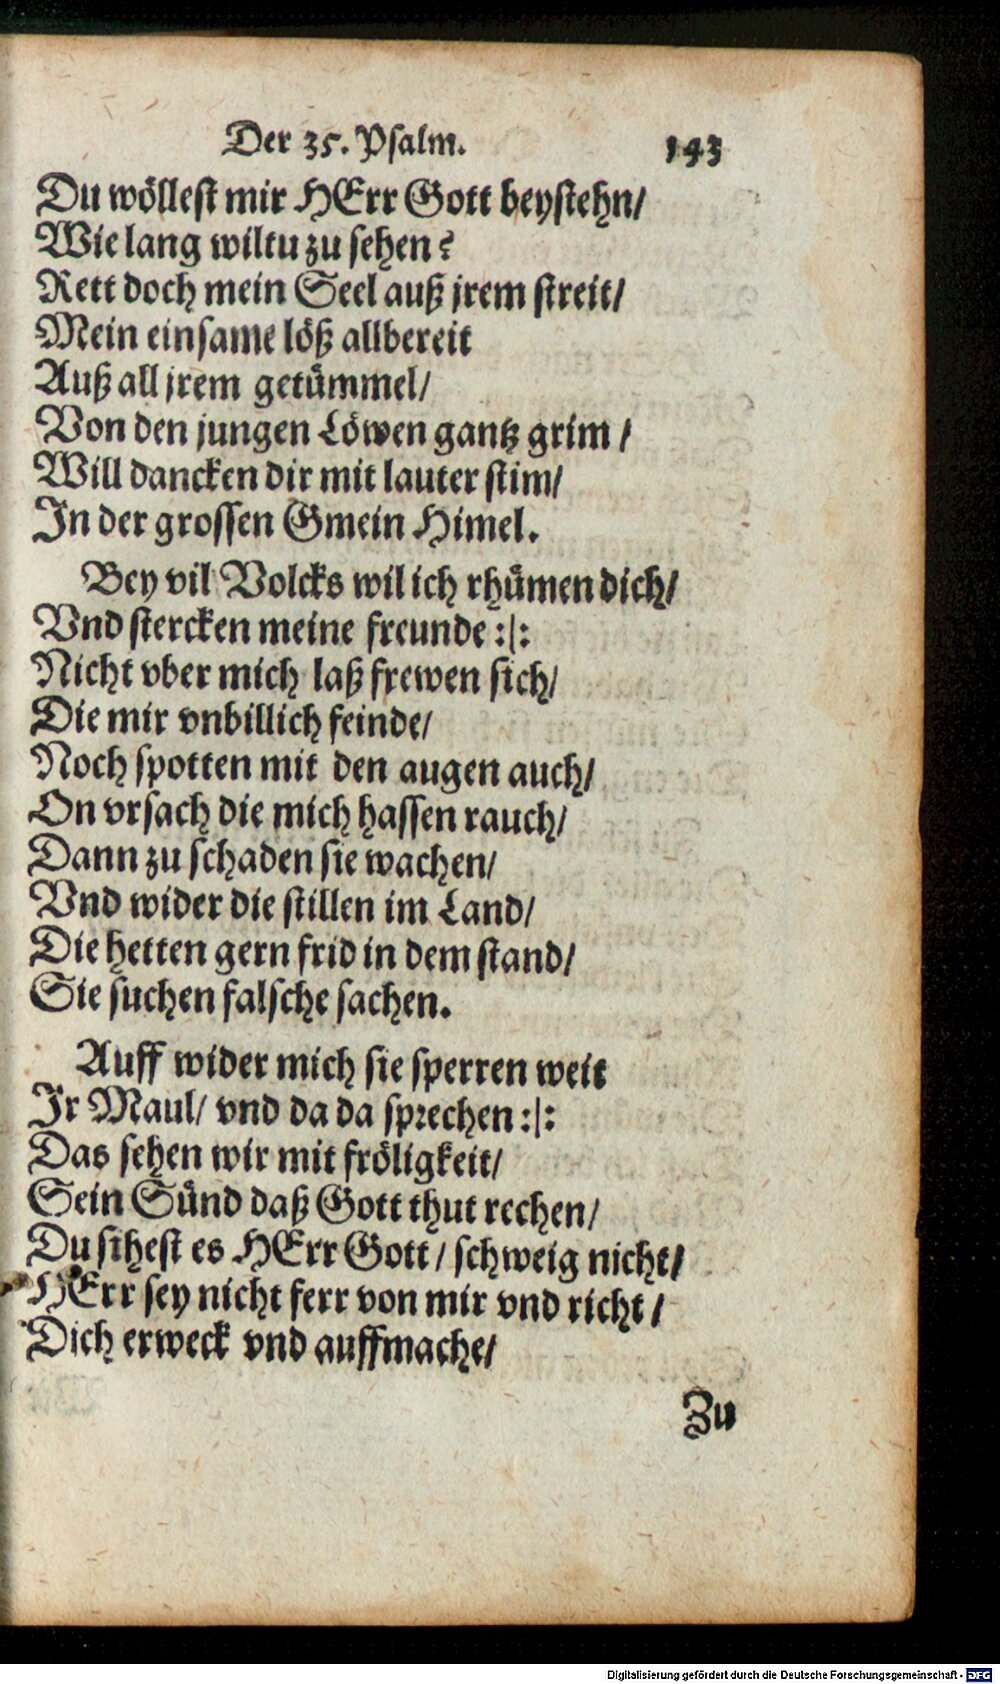 Der 35. Psalm. 143
Du wöllest mir HErr Gott beystehn/
Wie lang wiltu zu sehen?
Rett doch mein Seel auß jrem streit/
Mein einsame löß allbereit
Auß all jrem getümmel/
Von den jungen Löwen gantz grim /
Will dancken dir mit lauter stim/
In der grossen Gmein Himel.
Bey vil Volcks wil ich rhümen dich/
Vnd stercken meine freunde :|:
Nicht vber mich laß frewen sich/
Die mir vnbillich feinde/
Noch spotten mit den augen auch/
On vrsach die mich hassen rauch/
Dann zu schaden sie wachen/
Vnd wider die stillen im Land/
Die hetten gern frid in dem stand/
Sie suchen falsche sachen.
Auff wider mich sie sperren weit
Ir Maul/ vnd da da sprechen :|:
Das sehen wir mit fröligkeit/
Sein Sünd daß Gott thut rechen/
Du sihest es HErr Gott / schweig nicht/
HErr sey nicht ferr von mir vnd richt /
Dich erweck vnd auffmache/
Zu
Digitalisierung gefördert durch die Deutsche Forschungsgemeinschaft - DFG